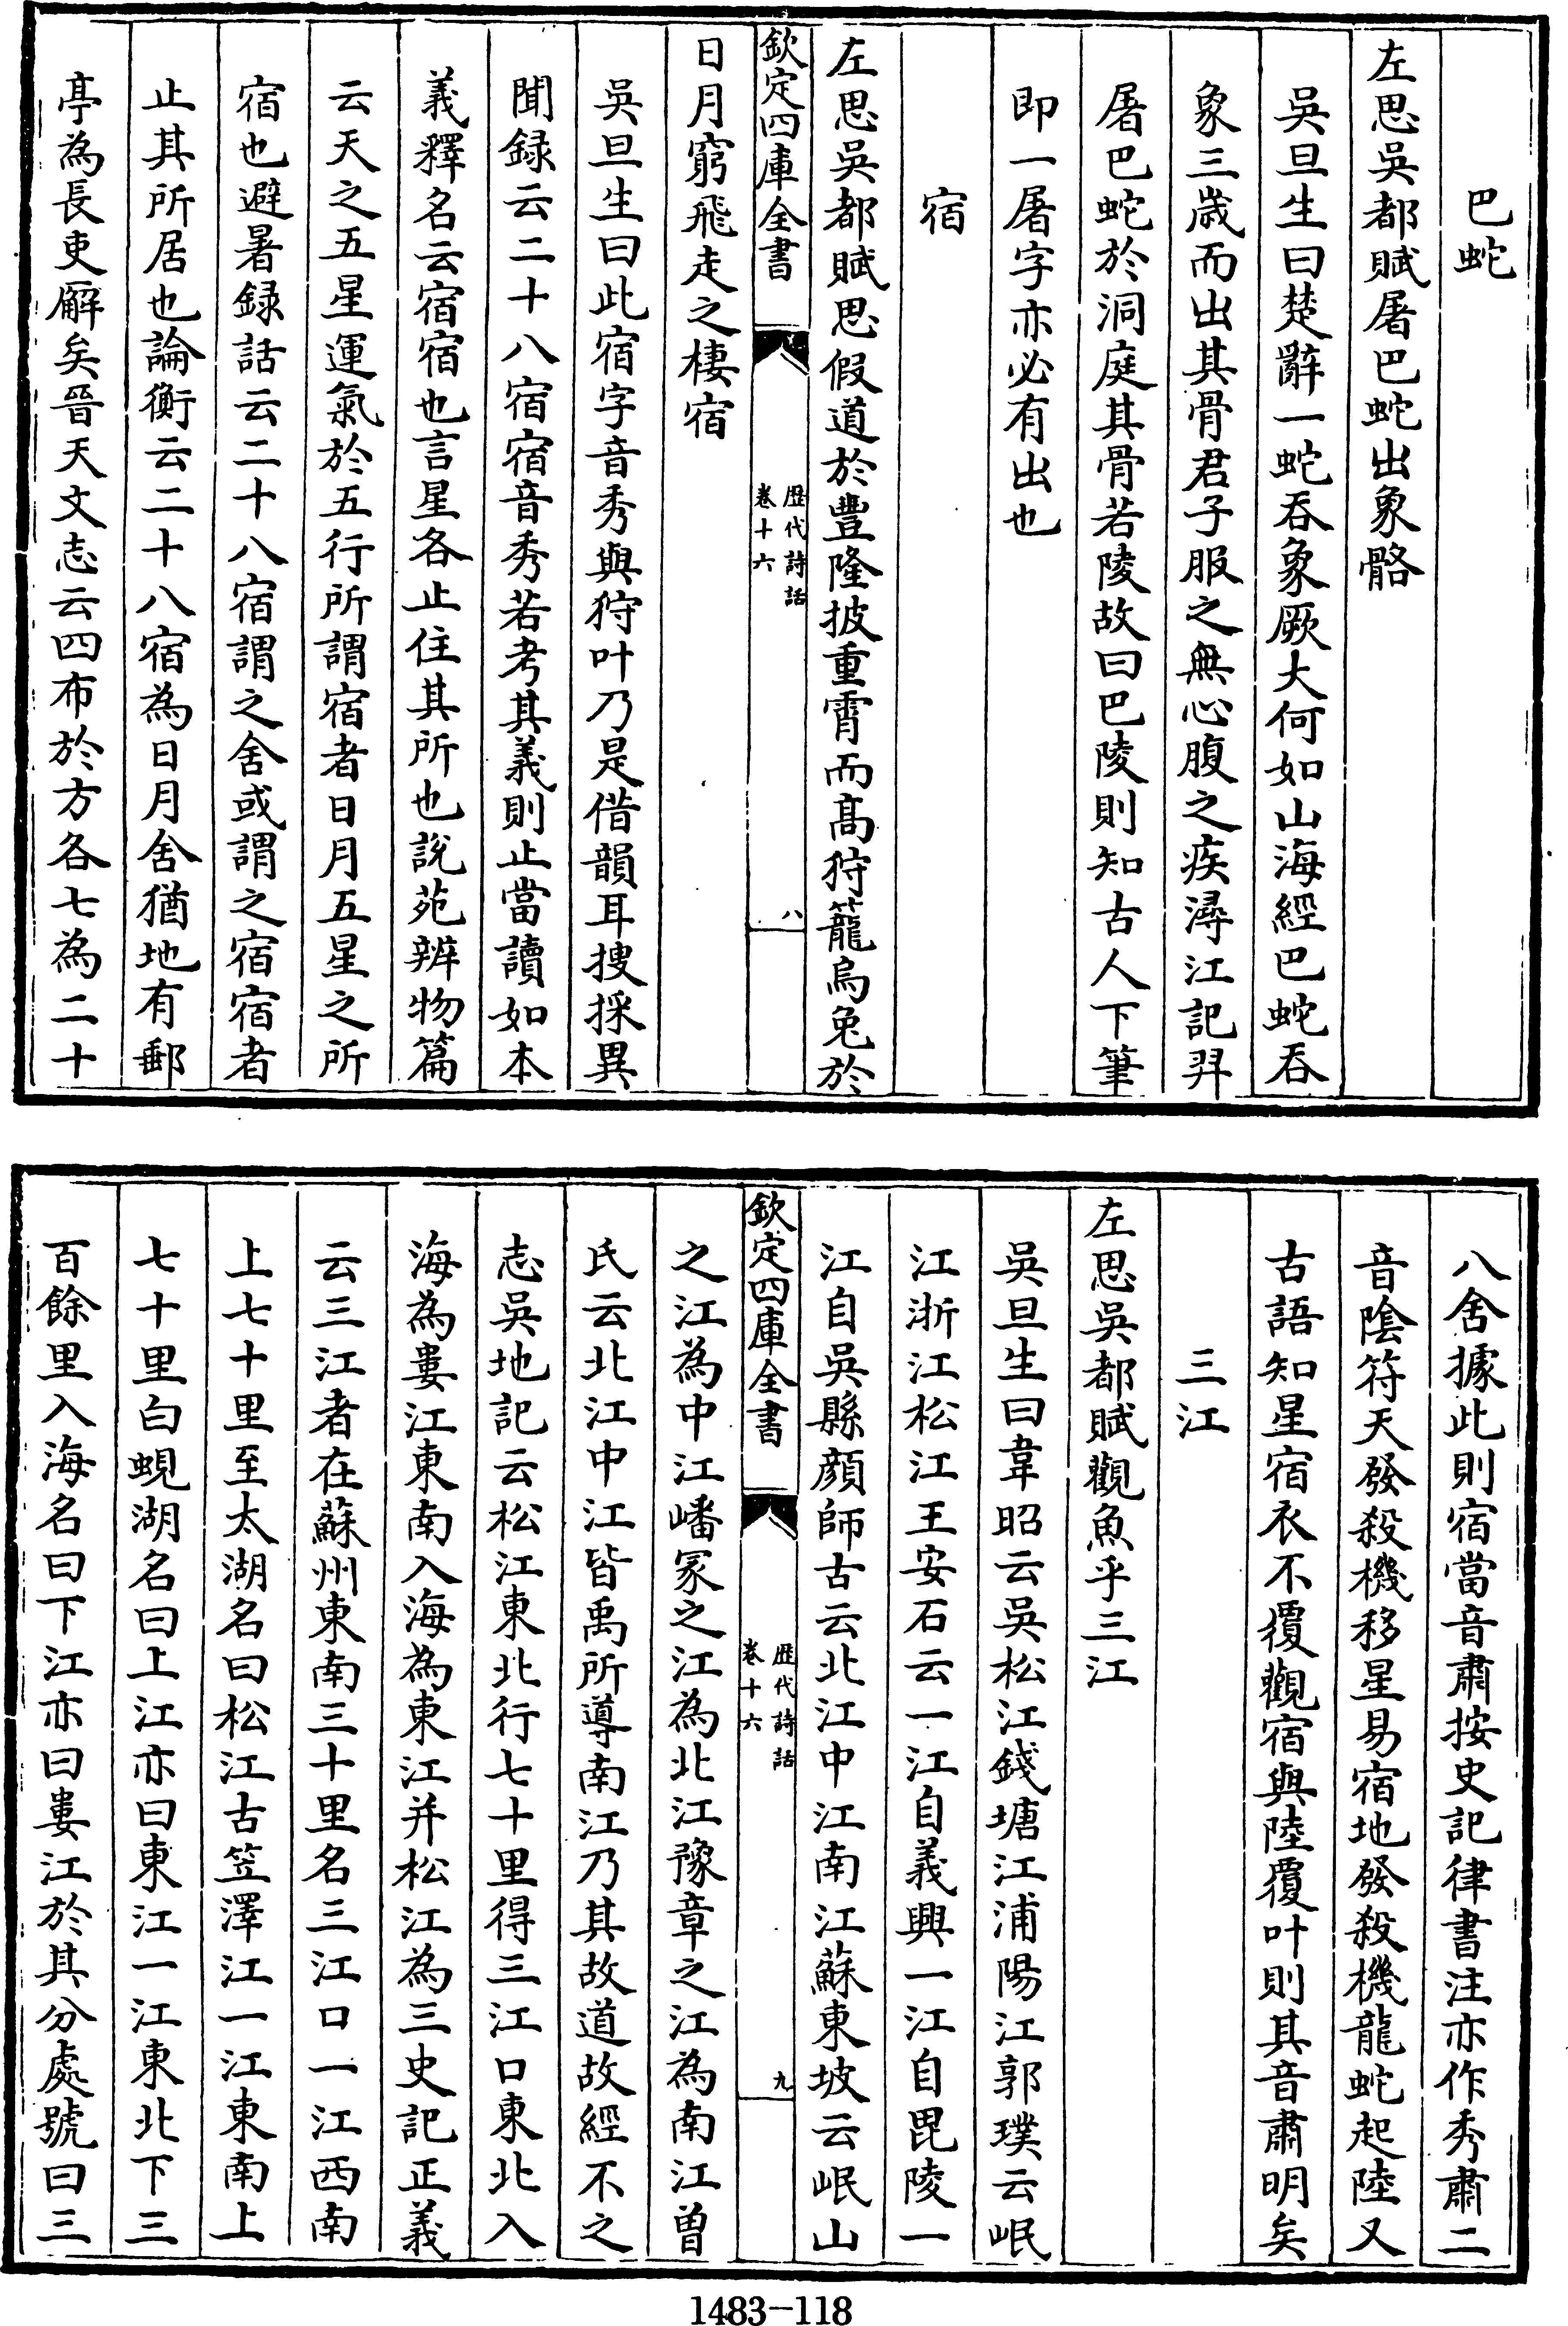 巴蛇
左思吳都賦屠巴蛇出象骼
吳旦生曰楚辭一蛇吞象厥大何如山海經巴蛇吞
象三歲而出其骨君子服之無心腹之疾潯江記羿
屠巴蛇於洞庭其骨若陵故曰巴陵則知古人下筆
即一屠字亦必有出也
宿
左思吳都賦思假道於豐隆披重霄而高狩籠烏兔於
欽定四庫全書
歷代詩話
卷十六
八
日月窮飛走之棲宿
吳旦生曰此宿字音秀與狩叶乃是借韻耳搜採異
聞録云二十八宿宿音秀若考其義則止當讀如本
義釋名云宿宿也言星各止住其所也說苑辨物篇
云天之五星運氣於五行所謂宿者日月五星之所
宿也避暑録話云二十八宿謂之舍或謂之宿宿者
止其所居也論衡云二十八宿為日月舍猶地有郵
亭為長吏廨矣晉天文志云四布於方各七為二十
八舍據此則宿當音肅按史記律書注亦作秀肅二
音陰符天發殺機移星易宿地發殺機龍蛇起陸又
古語知星宿衣不覆觀宿與陸覆叶則其音肅明矣
三江
左思吳都賦觀魚乎三江
吳旦生曰韋昭云吳松江錢塘江浦陽江郭璞云岷
江浙江松江王安石云一江自義興一江自毘陵一
江自吳縣顔師古云北江中江南江蘇東坡云岷山
欽定四庫全書
歷代詩話
卷十六
九
之江為中江嶓冢之江為北江豫章之江為南江曽
氏云北江中江皆禹所導南江乃其故道故經不之
志吳地記云松江東北行七十里得三江口東北入
海為婁江東南入海為東江并松江為三史記正義
云三江者在蘇州東南三十里名三江口一江西南
上七十里至太湖名曰松江古笠澤江一江東南上
七十里白蜆湖名曰上江亦曰東江一江東北下三
百餘里入海名曰下江亦曰婁江於其分處號曰三
1483-118